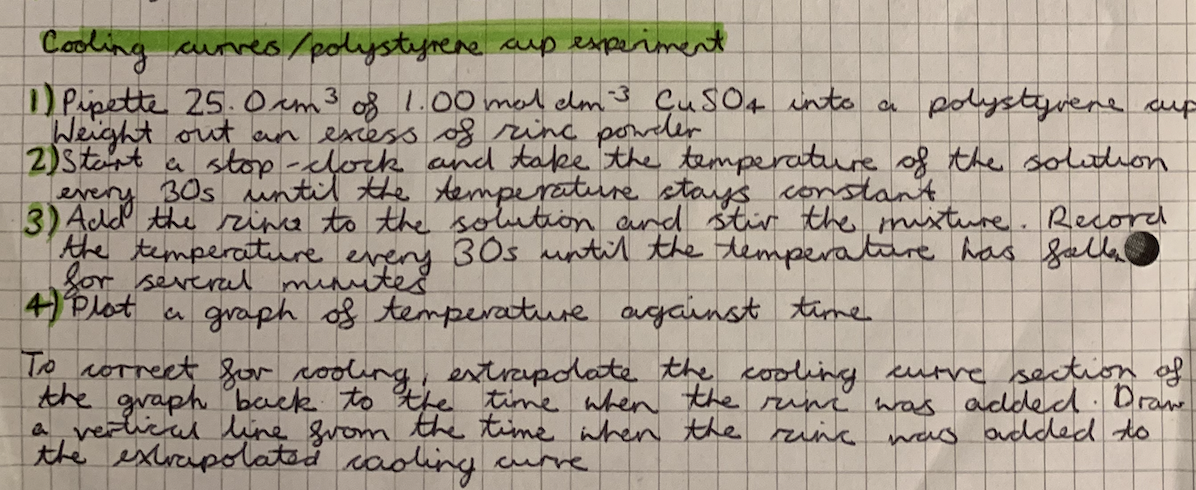 Cooling curves/polystyrene cup experiment
1) Pipette 25.0cm³ of 1.00 mol dm⁻³ CuSO₄ into a polystyrene cup
Weight out an excess of zinc powder
2) Start a stop-clock and take the temperature of the solution
every 30s until the temperature stays constant
3) Add the zinc to the solution and stir the mixture. Record
the temperature every 30s until the temperature has
for several minutes
4) Plot a graph of temperature against time
To correct for cooling, extrapolate the cooling curve section of
the graph back to the time when the zinc was added. Draw
a vertical line from the time when the zinc was added to
the extrapolated cooling curve